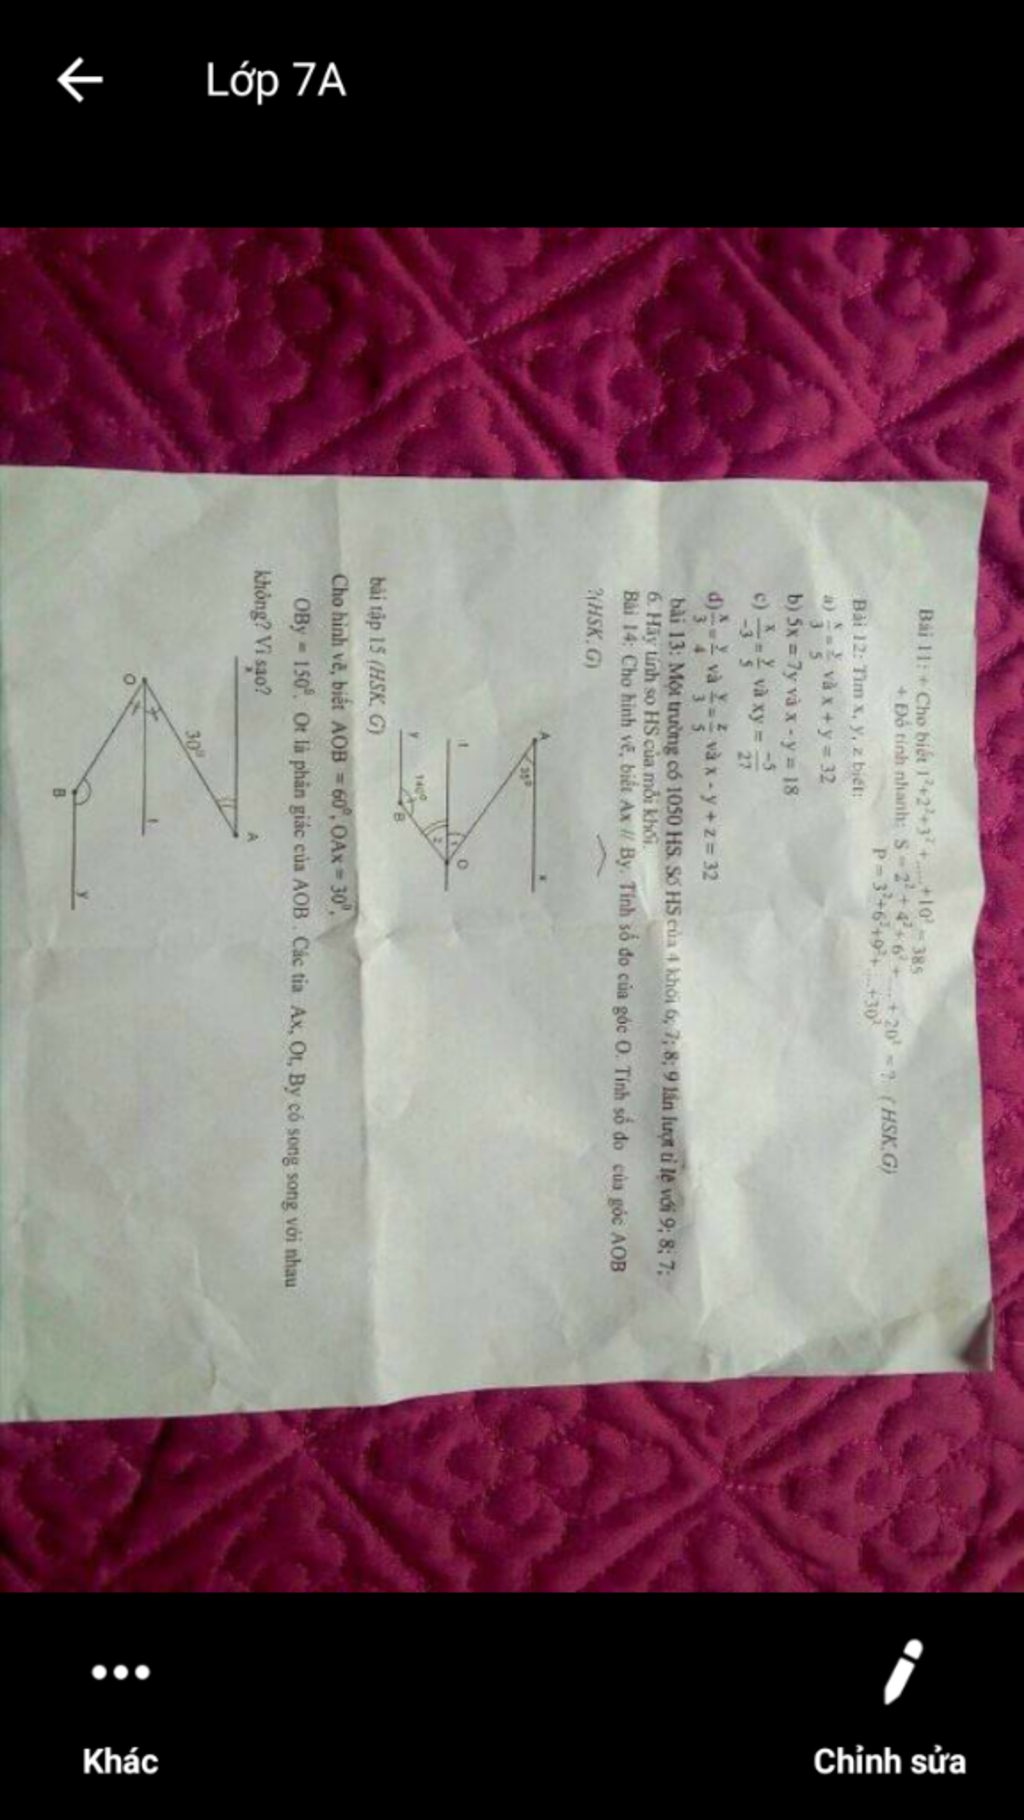 Lớp 7A
Bài 11: + Cho biết 1²+2²+3² + .....+10² = 385
+ Đố tính nhanh: S = 2² + 4² + 6² + .... + 20² = ? ( HSK,G)
P = 3²+6²+9²+....+30²
Bài 12: Tìm x, y, z biết:
a) x/3 = y/5 và x + y = 32
b) 5x = 7y và x - y = 18
c) x/-3 = y/5 và xy = -5/27
d) x/3 = y/4 và y/3 = z/5 và x - y + z = 32
bài 13: Một trường có 1050 HS. Số HS của 4 khối 6; 7; 8; 9 lần lượt tỉ lệ với 9; 8; 7;
6. Hãy tính so HS của mỗi khối.
Bài 14: Cho hình vẽ, biết Ax // By. Tính số đo của góc O. Tính số đo của góc AOB
?(HSK,G)
A
x
35⁰
t
1
2
O
y
140⁰
B
bài tập 15 (HSK, G)
Cho hình vẽ, biết AOB = 60⁰, OAx = 30⁰,
OBy = 150⁰. Ot là phân giác của AOB . Các tia Ax, Ot, By có song song với nhau
không? Vì sao?
A
30⁰
O
t
B
y
Khác
Chỉnh sửa